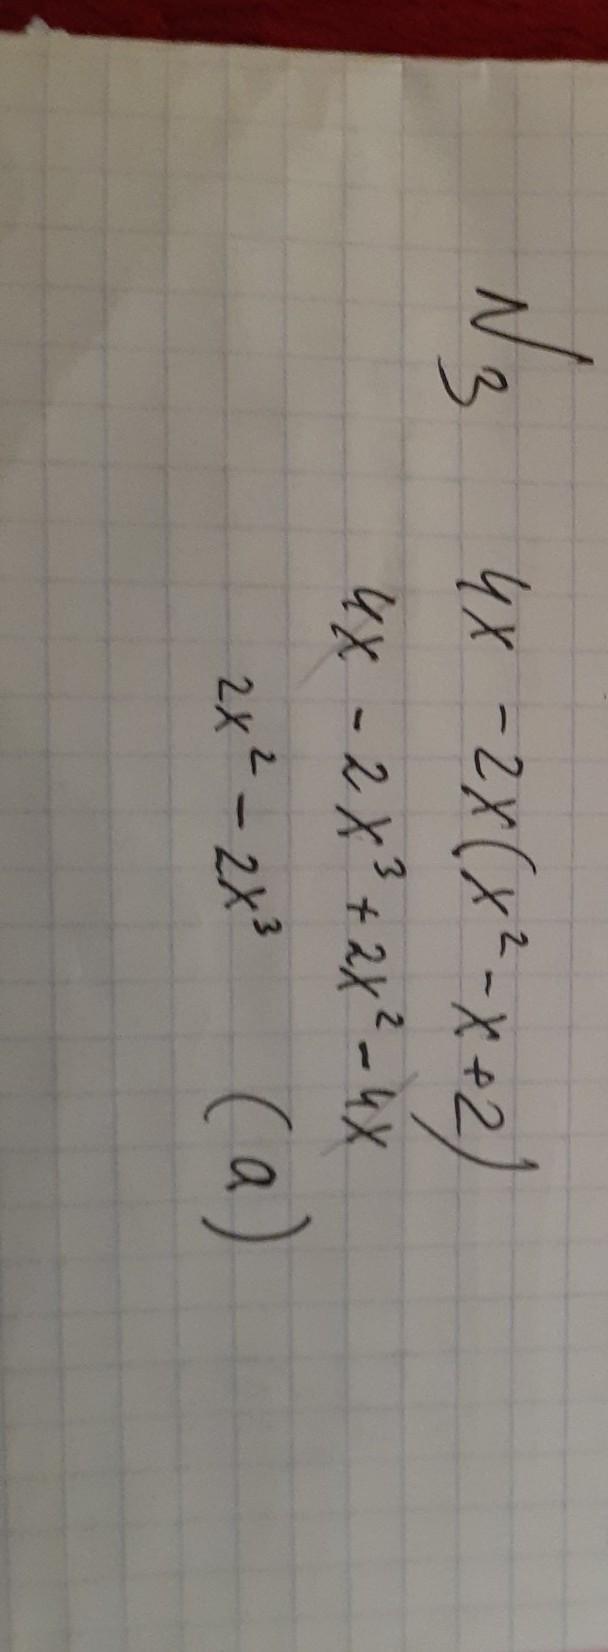 N3 4x - 2x(x² - x + 2)
4x - 2x³ + 2x² - 4x
2x² - 2x³ (a)